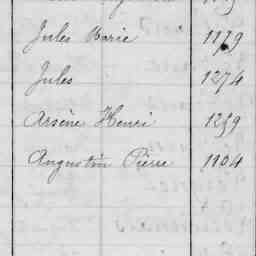 Jules Marie 1179
Jules 1274
Arsène Henri 1259
Augustin Pierre 1104